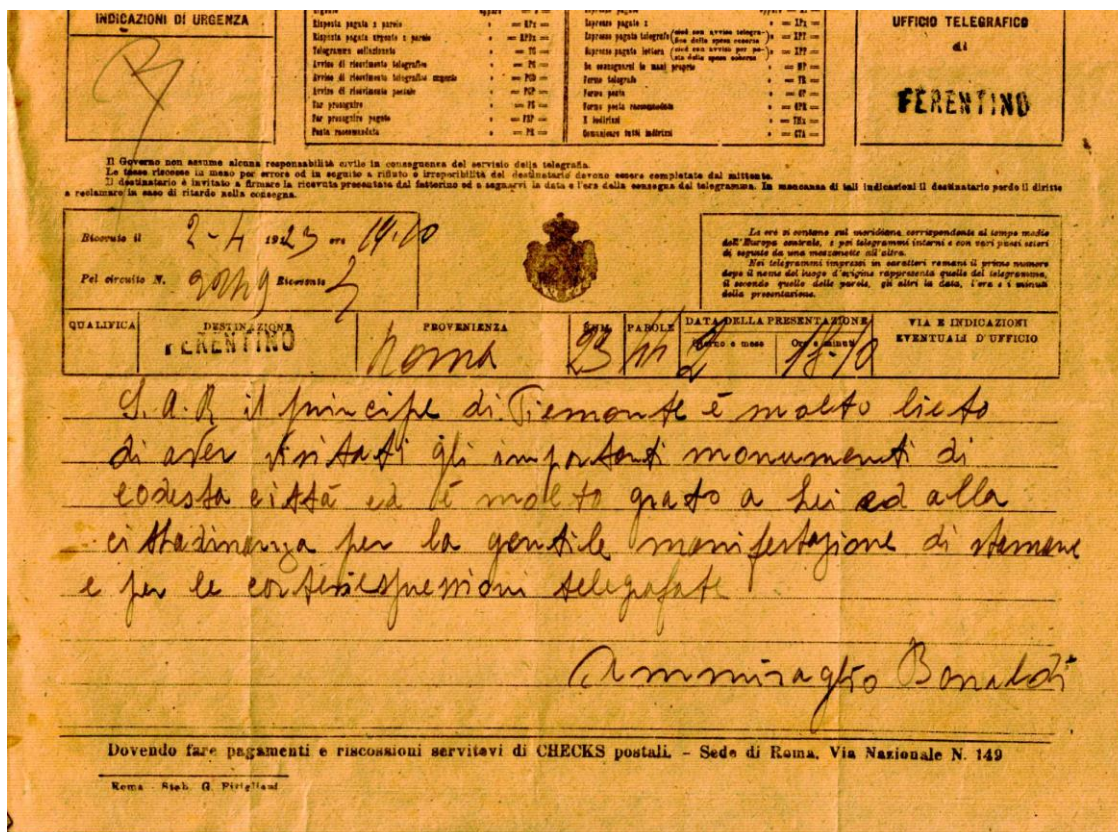 INDICAZIONI DI URGENZA
Risposta pagata x parole = RPx =
Risposta pagata urgente x parole = RPDx =
Telegramma collazionato = TC =
Avviso di ricevimento telegrafico = PC =
Avviso di ricevimento telegrafico urgente = PCD =
Avviso di ricevimento postale = PCP =
Far proseguire = FS =
Posta raccomandata = PR =
Espresso pagato x = XPx =
Espresso pagato telegrafo = XPT =
Espresso pagato lettera = XPP =
Da consegnarsi in mani proprie = MP =
Fermo telegrafo = TR =
Fermo posta = GP =
Fermo posta raccomandata = GPR =
X indirizzi = TMx =
Comunicare tutti indirizzi = CTA =
UFFICIO TELEGRAFICO
di
FERENTINO
Il Governo non assume alcuna responsabilità civile in conseguenza del servizio della telegrafia.
Le tasse riscosse in meno per errore od in seguito a rifiuto o irreperibilità del destinatario devono essere completate dal mittente.
Il destinatario è invitato a firmare la ricevuta presentata dal fattorino ed a segnarvi la data e l'ora della consegna del telegramma. In mancanza di tali indicazioni il destinatario perde il diritto
a reclamare in caso di ritardo nella consegna.
Ricevuto il 2-4 1923 ore 19.10
Pel circuito N. Ricevente
Le ore si contano sul meridiano corrispondente al tempo medio
dell'Europa centrale, e pei telegrammi interni e con vari paesi esteri
di seguito da una mezzanotte all'altra.
Nei telegrammi impressi in caratteri romani il primo numero
dopo il nome del luogo d'origine rappresenta quello del telegramma,
il secondo quello delle parole, gli altri la data, l'ora e i minuti
della presentazione.
QUALIFICA DESTINAZIONE PROVENIENZA NUM. PAROLE DATA DELLA PRESENTAZIONE VIA E INDICAZIONI
EVENTUALI D'UFFICIO
Giorno e mese Ore e minuti
FERENTINO Roma 23 44 2
S.A.R il principe di Piemonte è molto lieto
di aver visitati gli importanti monumenti di
codesta città ed è molto grato a Lei ed alla
cittadinanza per la gentile manifestazione di stamane
e per le cortesi espressioni telegrafate
Ammiraglio Bonaldi
Dovendo fare pagamenti e riscossioni servitevi di CHECKS postali. - Sede di Roma, Via Nazionale N. 149
Roma - Stab. G. Pirigliani